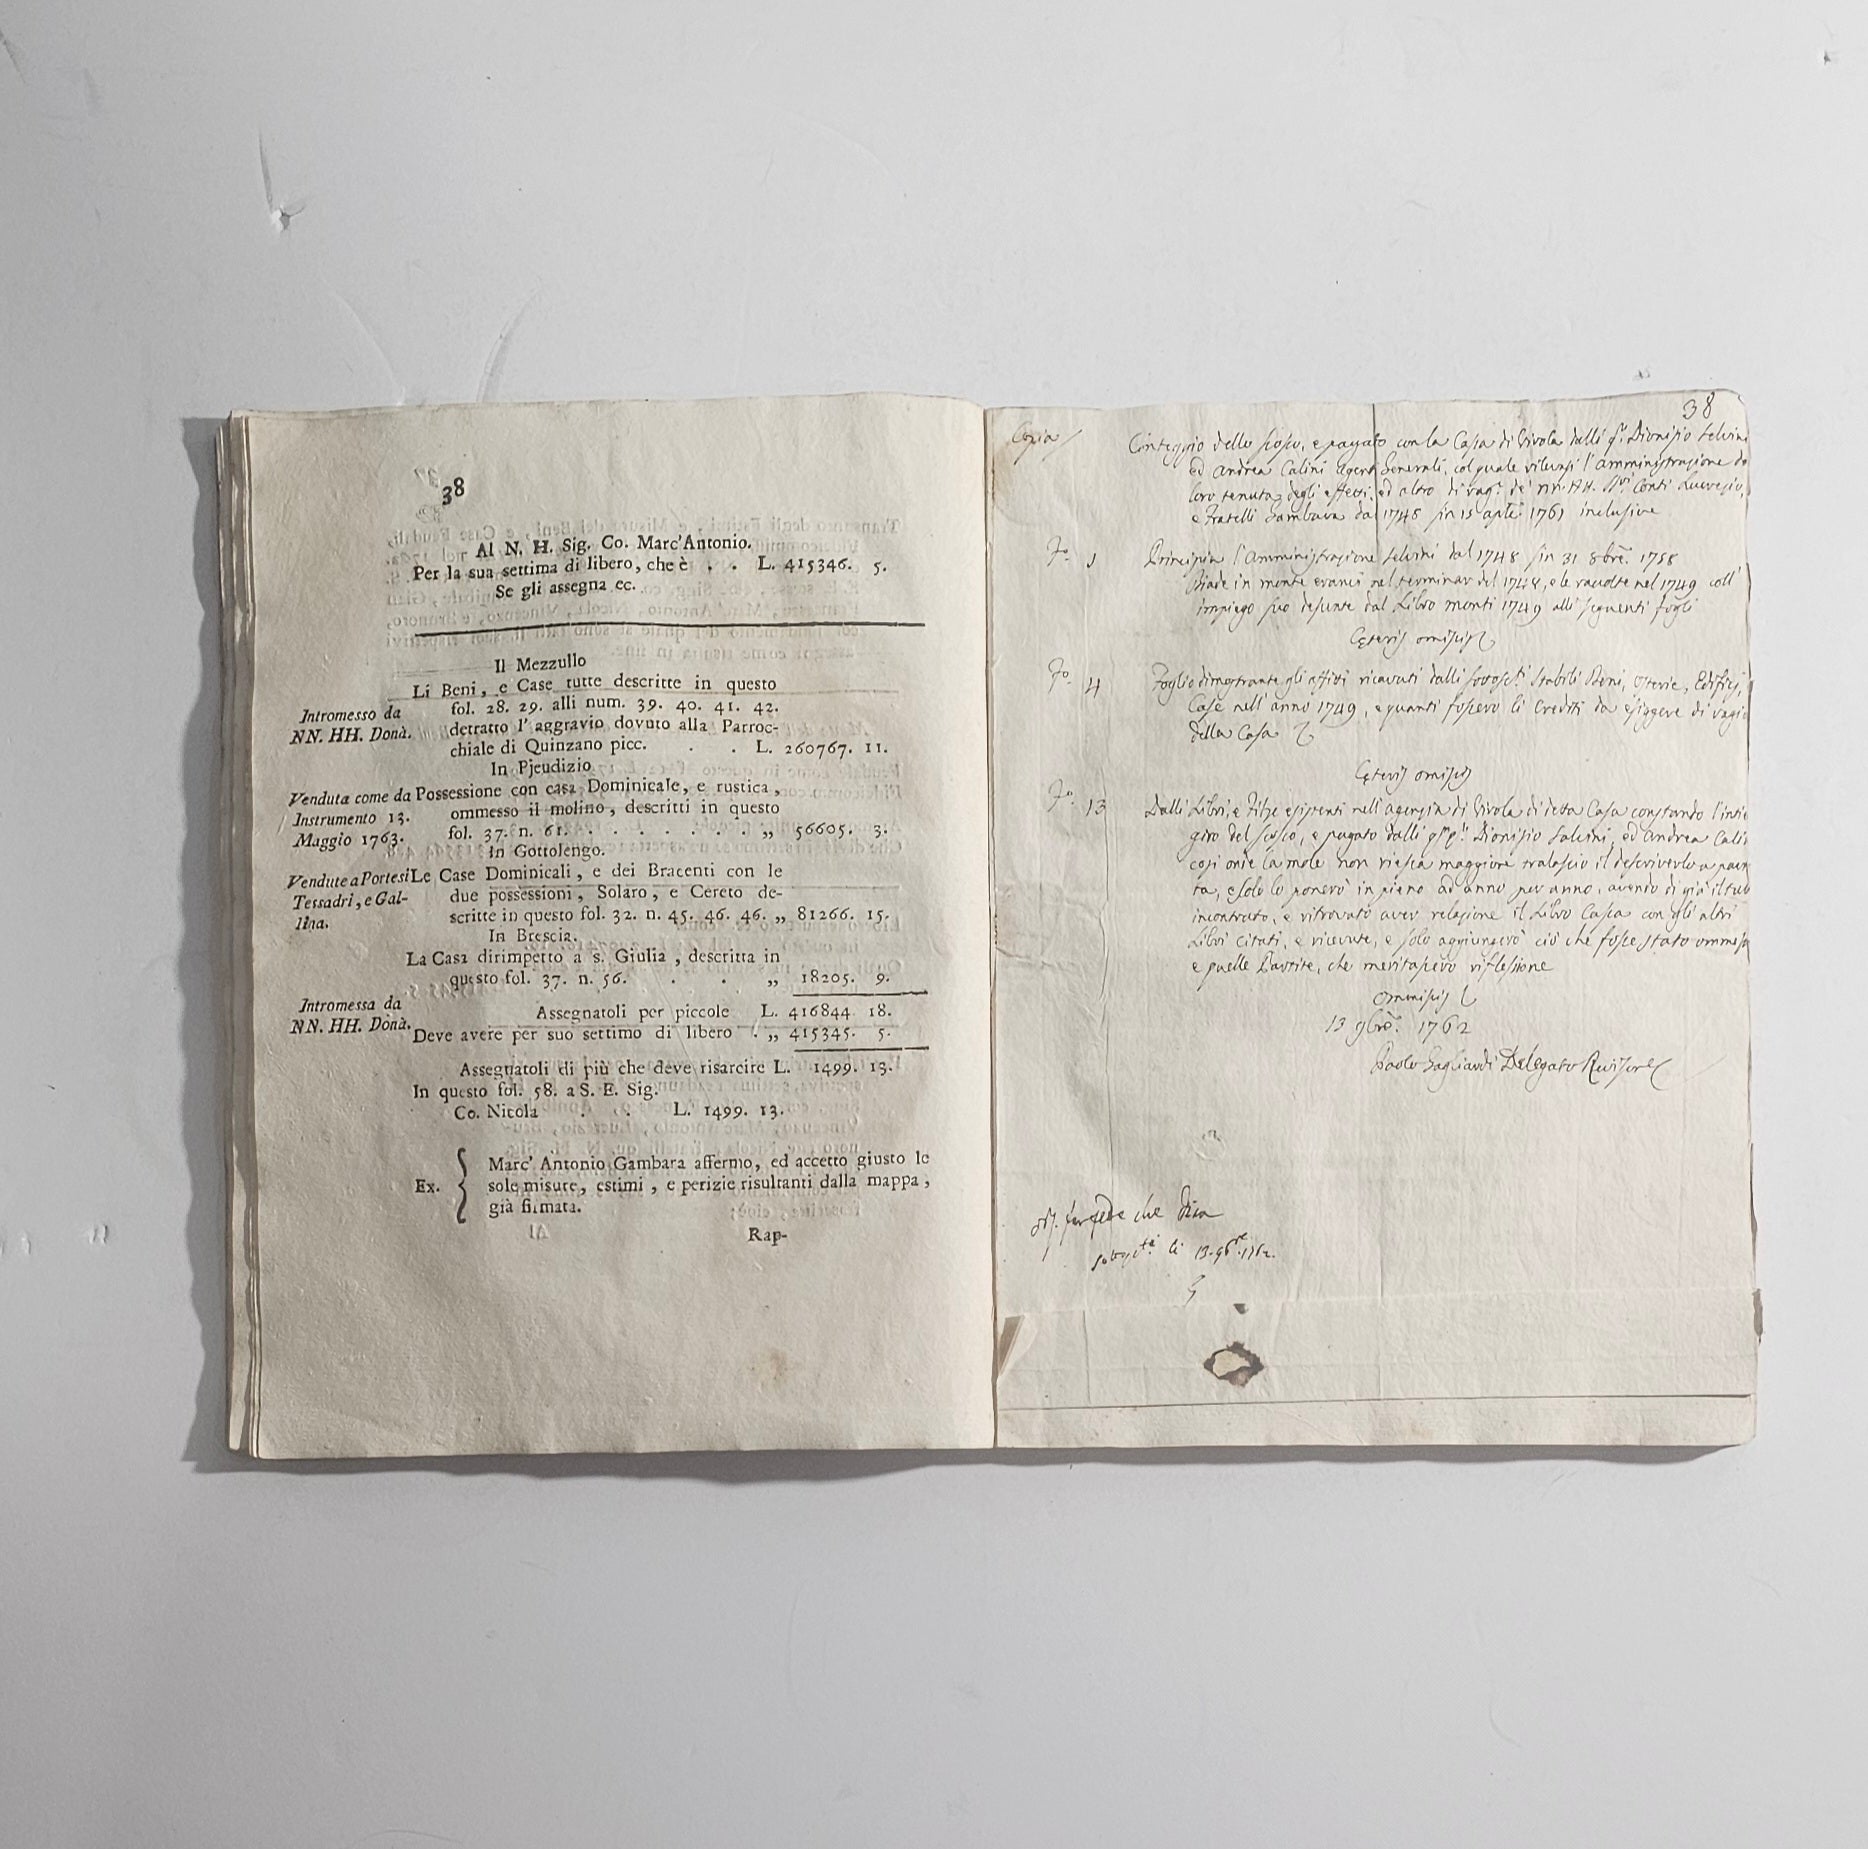 38
Al N. H. Sig. Co. Marc'Antonio.
Per la sua settima di libero, che è . . L. 415346. 5.
Se gli assegna ec.
Il Mezzullo
Li Beni, e Case tutte descritte in questo
Intromesso da fol. 28. 29. alli num. 39. 40. 41. 42.
NN. HH. Donà. detratto l'aggravio dovuto alla Parroc-
chiale di Quinzano picc. . . L. 260767. 11.
In Pjeudizio
Venduta come da Possessione con casa Dominicale, e rustica,
Instrumento 13. ommesso il molino, descritti in questo
Maggio 1763. fol. 37. n. 61. . . . . . . . „ 56605. 3.
In Gottolengo.
Vendute a Portesi Le Case Dominicali, e dei Bracenti con le
Tessadri, e Gal- due possessioni, Solaro, e Cereto de-
lina. scritte in questo fol. 32. n. 45. 46. 46. „ 81266. 15.
In Brescia.
La Casa dirimpetto a s. Giulia, descritta in
questo fol. 37. n. 56. . . „ 18205. 9.
Intromessa da Assegnatoli per piccole L. 416844 18.
NN. HH. Donà. Deve avere per suo settimo di libero . „ 415345. 5.
Assegnatoli di più che deve risarcire L. 1499. 13.
In questo fol. 58. a S. E. Sig.
Co. Nicola . . L. 1499. 13.
Marc' Antonio Gambara affermo, ed accetto giusto le
Ex. sole misure, estimi, e perizie risultanti dalla mappa,
già firmata.
Rap-
38
Copia
Conteggio dello scosso, e pagato con la Casa di Virola dalli Dionisio
ed Andrea Calini Agenti Generali, col quale l'amministrazione da
loro tenuta degli effetti, ed altro di rag. de' NN. HH. Conti
e Fratelli Gambara dal 1748 sin 15 aprle 1761 inclusive
Fo. 1 Principia l'Amministrazione dal 1748 sin 31 8bre. 1758
in monte nel terminar del 1748, e le racolte nel 1749 coll'
impiego suo desunte dal Libro monti 1749 alli seguenti fogli
Ceteris omissis
Fo. 4 Foglio dimostrante gli affitti ricavati dalli Stabili Beni, Osterie, Edifici,
Case nell'anno 1749, e quanti fossero li Crediti da esiggere di ragio
della Casa
Ceteris omissis
Fo. 13 Dalli Libri, e Filze esistenti nell'agenzia di Virola di detta Casa constando l'inti
giro del scosso, e pagato dalli Dionisio Salvini, ed Andrea Cali
così onde la mole non riesca maggiore tralascio il descriverlo a
ta, e solo lo ponerò in pieno ad anno per anno, avendo di già il tut
incontrato, e ritrovato aver relazione il Libro Cassa con gli altri
Libri citati, e ricevute, e solo aggiungerò ciò che fosse stato ommesso
e quelle Partite, che meritassero riflessione
Ommissis
13 9bre. 1762
Paolo Gagliardi Delegato Revisore
che
li 13. 9bre. 1762.